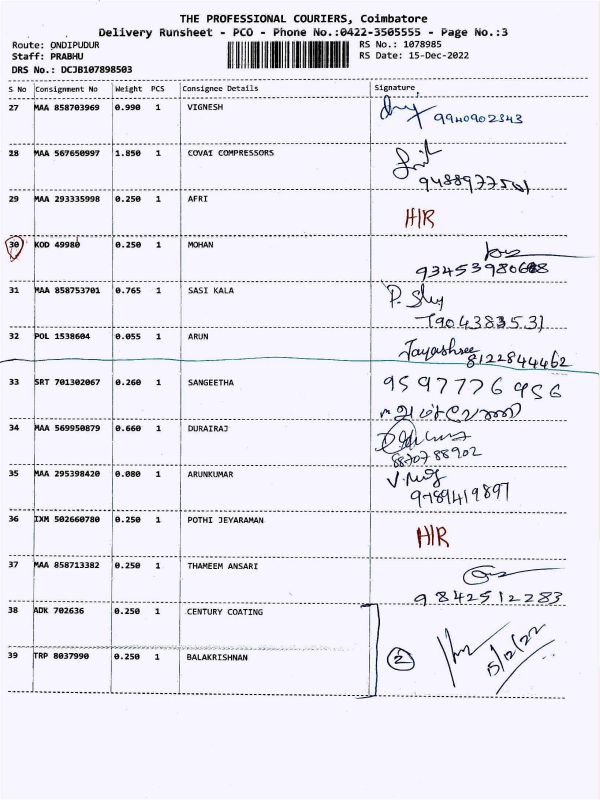 THE PROFESSIONAL COURIERS, Coimbatore
Delivery Runsheet - PCO - Phone No.:0422-3505555 - Page No.:3
Route: ONDIPUDUR RS No.: 1078985
Staff: PRABHU RS Date: 15-Dec-2022
DRS No.: DCJB107898503
S No Consignment No Weight PCS Consignee Details Signature
27 MAA 858703969 0.990 1 VIGNESH
28 MAA 567650997 1.850 1 COVAI COMPRESSORS
29 MAA 293335998 0.250 1 AFRI H/R
30 KOD 49980 0.250 1 MOHAN
31 MAA 858753701 0.765 1 SASI KALA
7904383531
32 POL 1538604 0.055 1 ARUN Jayashree
8122844462
33 SRT 701302067 0.260 1 SANGEETHA 9597776956
34 MAA 569950879 0.660 1 DURAIRAJ
8870788902
35 MAA 295398420 0.080 1 ARUNKUMAR
9789419897
36 IXM 502660780 0.250 1 POTHI JEYARAMAN H/R
37 MAA 858713382 0.250 1 THAMEEM ANSARI
9842512283
38 ADK 702636 0.250 1 CENTURY COATING
39 TRP 8037990 0.250 1 BALAKRISHNAN 2 15/12/22